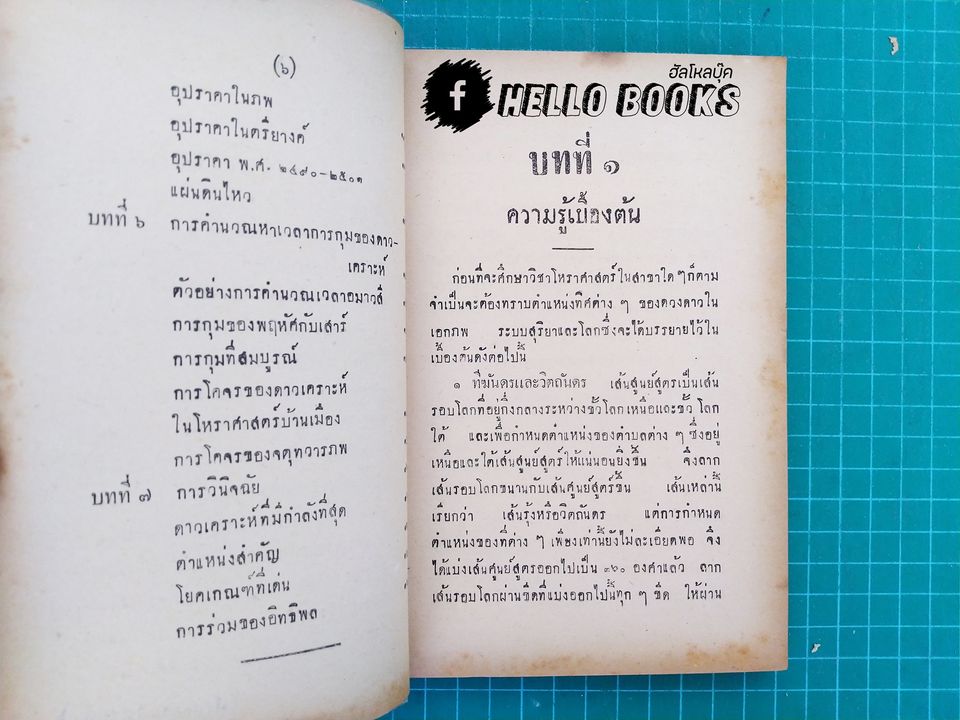 (๖)
อุปราคาในภพ
อุปราคาในตรียางค์
อุปราคา พ.ศ. ๒๔๙๐-๒๕๐๑
แผ่นดินไหว
บทที่ ๖ การคำนวณหาเวลาการกุมของดาว-
เคราะห์
ตัวอย่างการคำนวณเวลาอมาวสี
การกุมของพฤหัศกับเสาร์
การกุมที่สมบูรณ์
การโคจรของดาวเคราะห์
ในโหราศาสตร์บ้านเมือง
การโคจรของจตุทวารภพ
บทที่ ๗ การวินิจฉัย
ดาวเคราะห์ที่มีกำลังที่สุด
ตำแหน่งสำคัญ
โยคเกณฑ์ที่เด่น
การร่วมของอิทธิพล
f
ฮัลโหลบุ๊ค
HELLO BOOKS
บทที่ ๑
ความรู้เบื้องต้น
ก่อนที่จะศึกษาวิชาโหราศาสตร์ในสาขาใด ๆ ก็ตาม
จำเป็นจะต้องทราบตำแหน่งทิศต่าง ๆ ของดวงดาวใน
เอกภพ ระบบสุริยาและโลกซึ่งจะได้บรรยายไว้ใน
เบื้องต้นดังต่อไปนี้
๑ ทีฆันดรและวิตถันดร เส้นสูนย์สูตรเป็นเส้น
รอบโลกที่อยู่กึ่งกลางระหว่างขั้วโลกเหนือและขั้วโลก
ใต้ และเพื่อกำหนดตำแหน่งของตำบลต่าง ๆ ซึ่งอยู่
เหนือและใต้เส้นสูนย์สูตร์ให้แน่นอนยิ่งขึ้น จึงลาก
เส้นรอบโลกขนานกับเส้นศูนย์สูตร์ขึ้น เส้นเหล่านี้
เรียกว่า เส้นรุ้งหรือวิตถันดร แต่การกำหนด
ตำแหน่งของที่ต่าง ๆ เพียงเท่านี้ยังไม่ละเอียดพอ จึง
ได้แบ่งเส้นศูนย์สูตรออกไปเป็น ๓๖๐ องศาแล้ว ลาก
เส้นรอบโลกผ่านขีดที่แบ่งออกไปนั้นทุก ๆ ขีด ให้ผ่าน